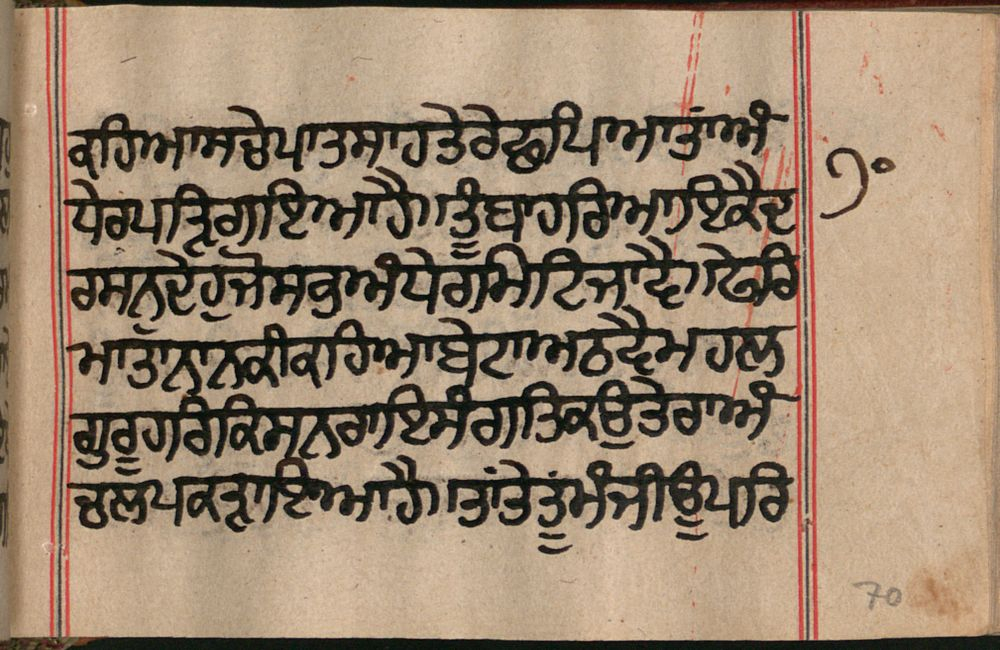 ਕਹਿਆਸਚੇਪਾਤਸਾਹਤੇਰੇਛਪਿਆਤਾਂਅੰ
ਧੇਰਪੜਿਗਇਆਹੈ॥ਤੂੰਬਾਹਰਿਆਇਕੈਦ
ਰਸਨਦੇਹੁਜੋਸਭੁਅੰਧੇਰਾਮਿਟਿਜਾਵੈ॥ਫੇਰਿ
ਮਾਤਾਨਾਨਕੀਕਹਿਆਬੇਟਾਅਠਵੈਮਹਲ
ਗੁਰੂਹਰਿਕਿਸਨਰਾਇਸੰਗਤਿਕਉਤੇਰਾਅੰ
ਚਲਪਕੜਾਇਆਹੈ॥ਤਾਂਤੇਤੂੰਮੰਜੀਊਪਰਿ
੭੦
70